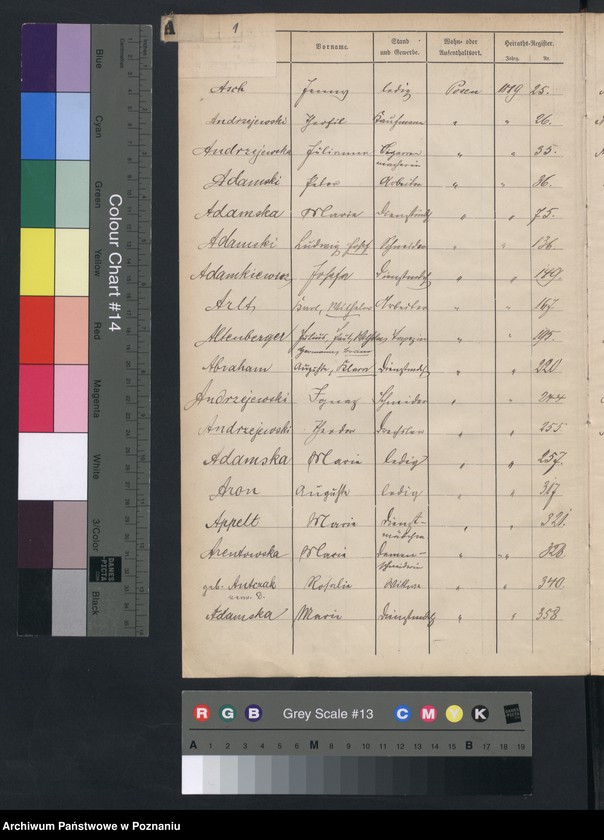 A 1
Vorname. Stand und Gewerbe. Wohn- oder Aufenthaltsort. Heiraths-Register.
Jahrg. Nr.
Asch Jenny ledig Posen 1879 25.
Andrzejewski Theofil Kaufmann " " 26.
Andrzejewska Julianna Cigarren " " 35.
macherin
Adamski Peter Arbeiter " " 36.
Adamska Marie Dienstmdch " " 75.
Adamski Ludwig Josef Schneider " " 136.
Adamkiewicz Josefa Dienstmdch " " 149.
Arlt Karl, Wilhelm Arbeiter " " 167
Altenberger Julius, Paul, " " 195.
Hermann, Franz
Abraham Auguste, Klara Dienstmdch " " 220
Andrzejewski Ignaz Schneider " " 244
Andrzejewski Theodor Drechsler " " 255
Adamska Marie ledig " " 257.
Aron Auguste ledig " " 317
Appelt Marie Dienst- " " 321.
mädchen
Arentowska Marie Damen- " " 328
schneiderin
geb. Antczak Rosalie Wittwe " " 340
Adamska Marie Dienstmdch " " 358
Blue
Cyan
Green
Yellow
Red
Magenta
White
3/Color
Black
Colour Chart #14
Centimetres Inches
DANES PICTA
R G B Grey Scale #13 C M Y K
A 1 2 3 4 5 6 M 8 9 10 11 12 13 14 15 B 17 18 19
Archiwum Państwowe w Poznaniu